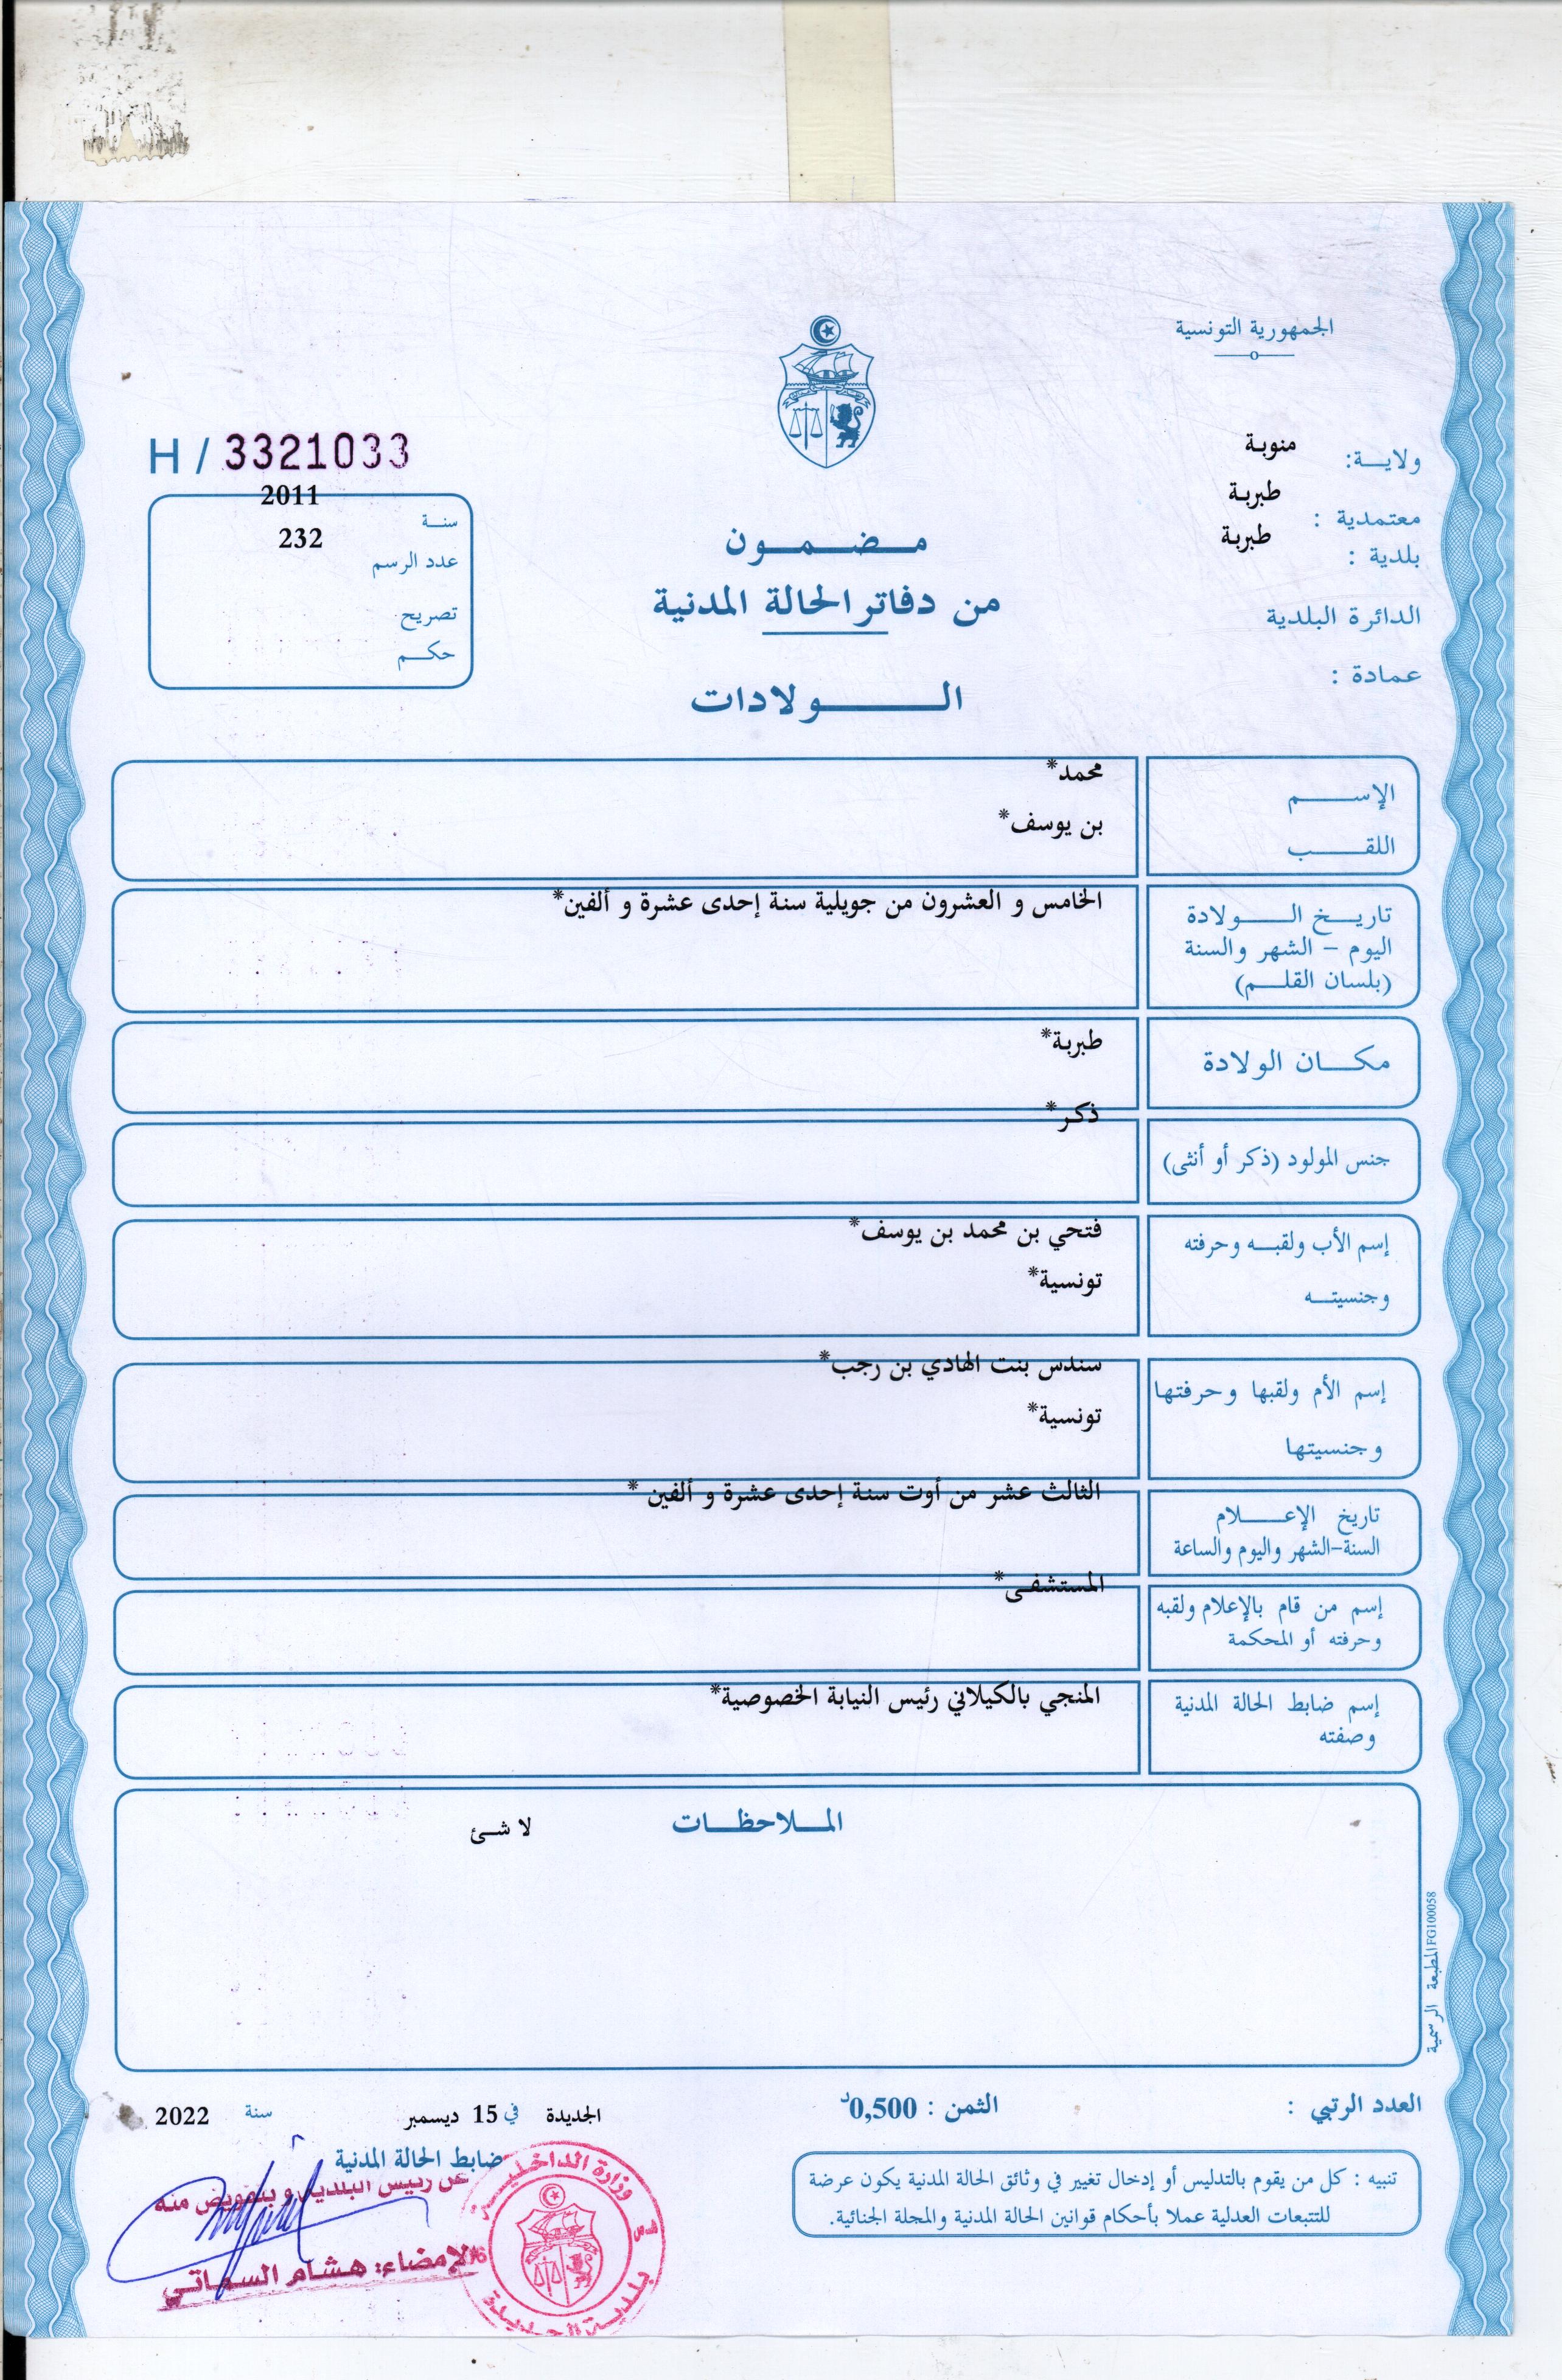 الجمهورية التونسية
ولايـــة: منوبة
معتمدية : طبربة
بلدية : طبربة
الدائرة البلدية
عمادة :
H / 3321033
سنــة 2011
عدد الرسم 232
تصريح
حكــم
مــضــمــون
من دفاتر الحالة المدنية
الــــولادات
الإســـــم محمد*
اللقـــــب بن يوسف*
تاريــخ الـــــولادة الخامس و العشرون من جويلية سنة إحدى عشرة و ألفين*
اليوم – الشهر والسنة
(بلسان القلــم)
مكـــان الولادة طبربة*
جنس المولود (ذكر أو أنثى) ذكر*
إسم الأب ولقبــه وحرفته فتحي بن محمد بن يوسف*
وجنسيتــه تونسية*
إسم الأم ولقبها وحرفتها سندس بنت الهادي بن رجب*
وجنسيتها تونسية*
تاريخ الإعــــلام الثالث عشر من أوت سنة إحدى عشرة و ألفين *
السنة-الشهر واليوم والساعة
إسم من قام بالإعلام ولقبه المستشفى*
وحرفته أو المحكمة
إسم ضابط الحالة المدنية المنجي بالكيلاني رئيس النيابة الخصوصية*
وصفته
المــلاحظــات
لا شئ
المطبعة الرسمية IFG100058
العدد الرتبي :
الثمن : 0,500د
الجديدة في 15 ديسمبر سنة 2022
ضابط الحالة المدنية
عن رئيس البلدية و بتفويض منه
الإمضاء: هشام السماتي
وزارة الداخلية
بلدية الجديدة
تنبيه : كل من يقوم بالتدليس أو إدخال تغيير في وثائق الحالة المدنية يكون عرضة
للتتبعات العدلية عملا بأحكام قوانين الحالة المدنية والمجلة الجنائية.